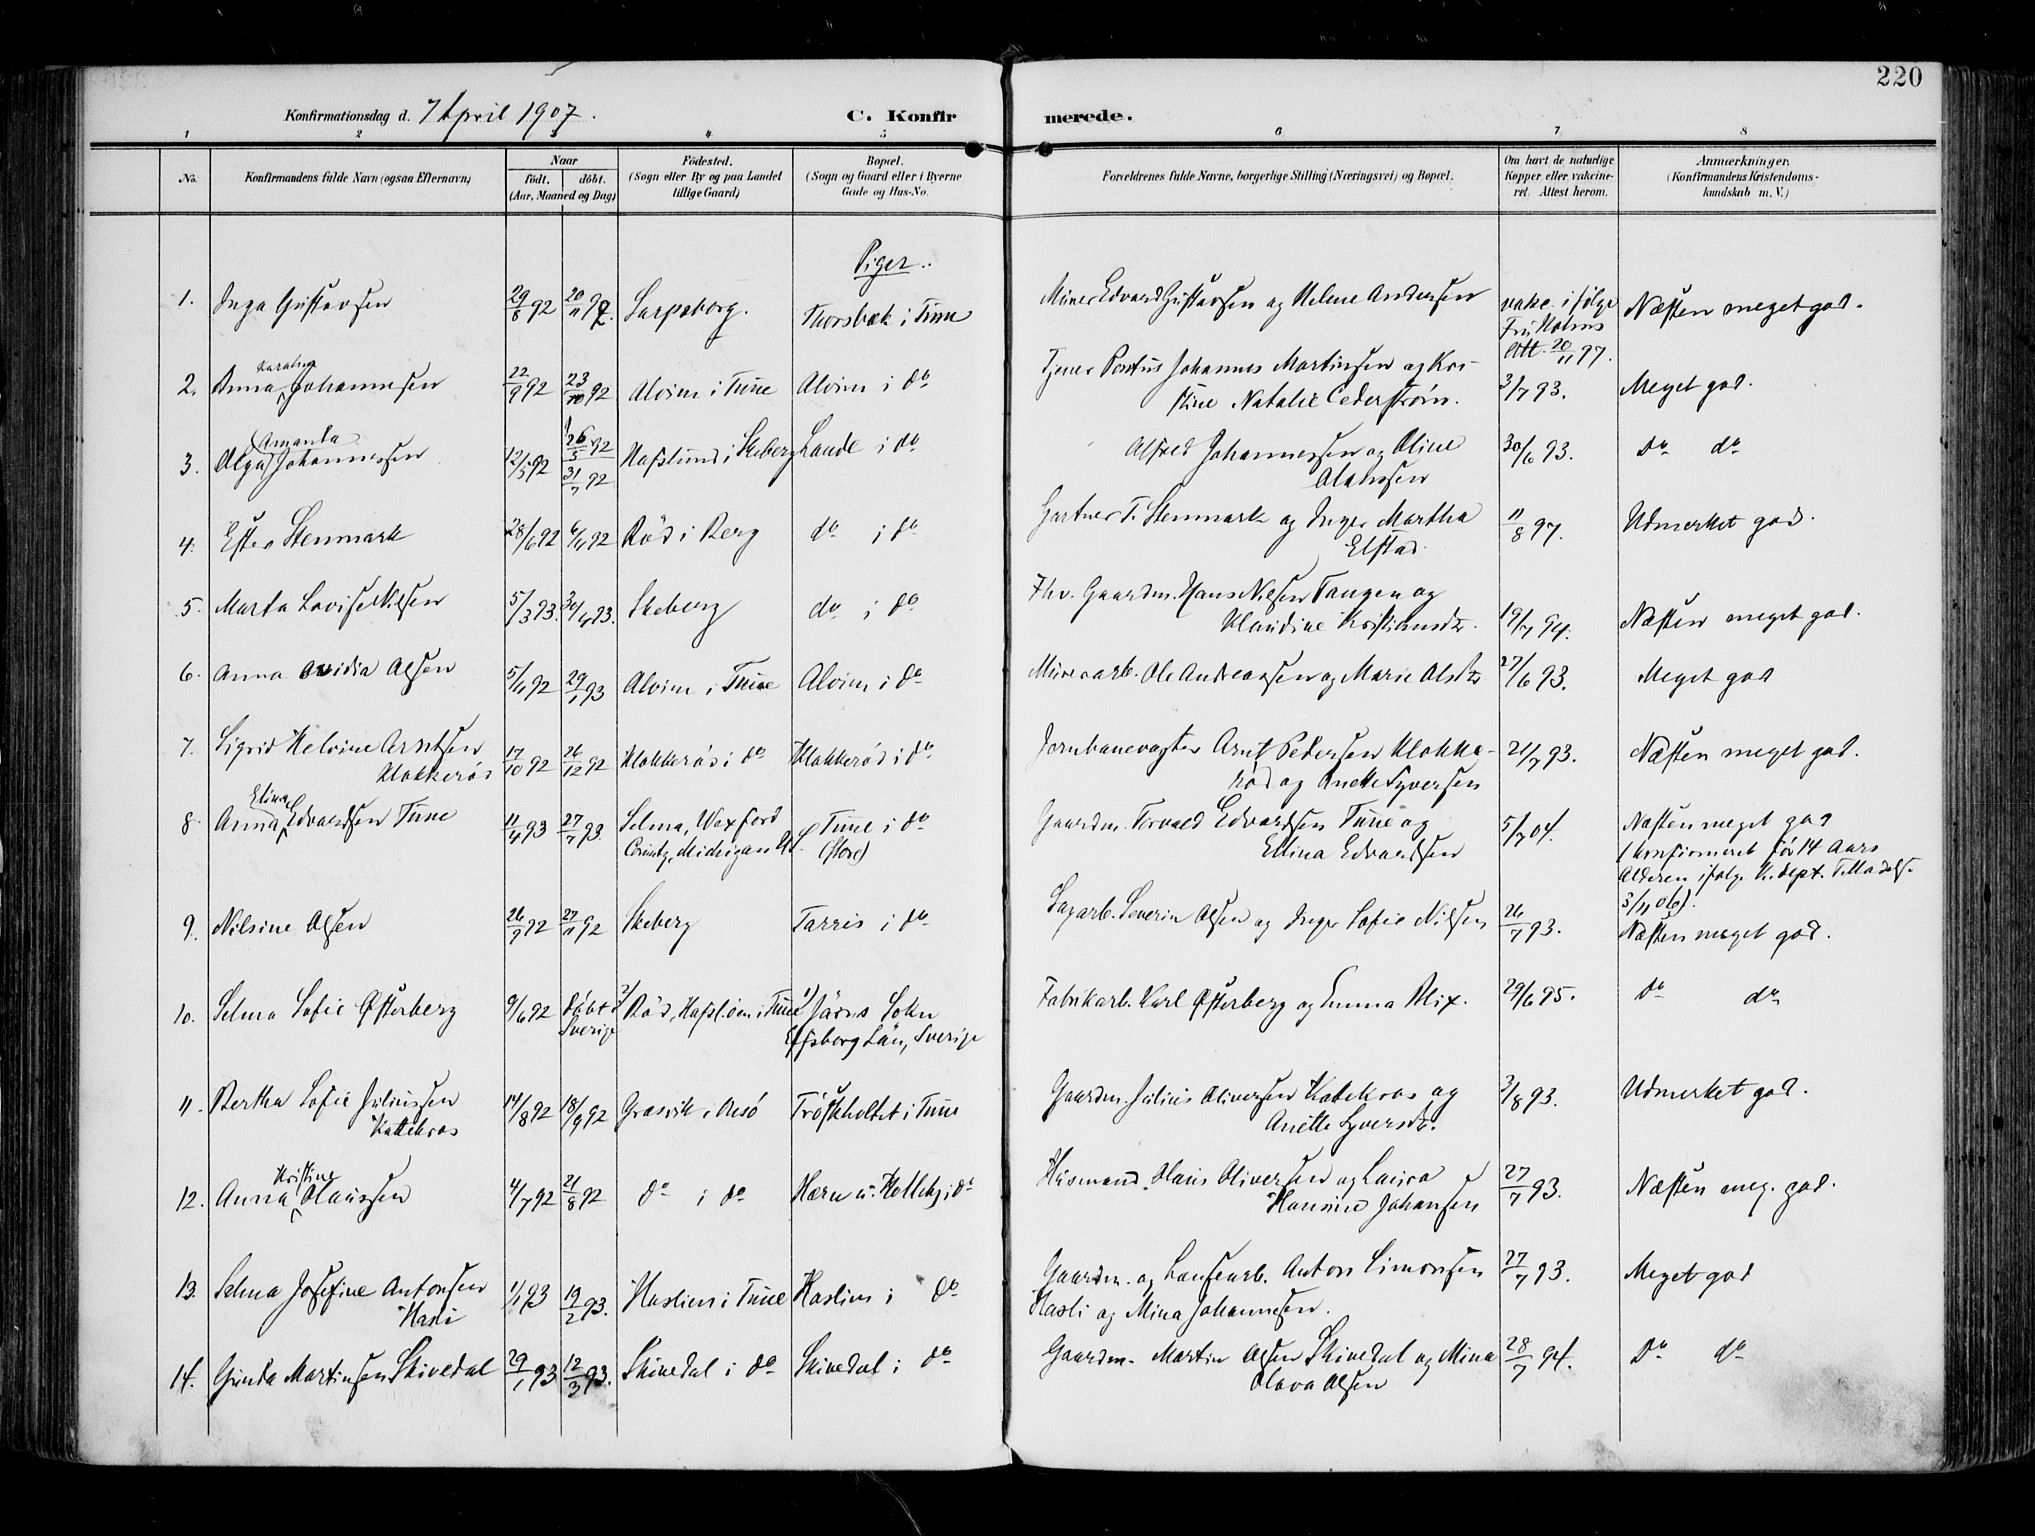 220
Konfirmationsdag d. 7 April 1907. C. Konfirmerede.
1 2 3 4 5 6 7 8
No. Konfirmandens fulde Navn (ogsaa Efternavn) Naar födt. döbt. (Aar, Maaned og Dag) Födested. (Sogn eller By og paa Landet tillige Gaard) Bopæl. (Sogn og Gaard eller i Byerne Gade og Hus-No. Forældrenes fulde Navne, borgerlige Stilling (Næringsvei) og Bopæl. Om havt de naturlige Kopper eller vakcineret. Attest herom. Anmærkninger. (Konfirmandens Kristendomskundskab m. V.)
Piger.
1. Inga Gustavsen 29/8 92 20/11 92. Sarpsborg. Thorsbæk i Tune Murer Edvard Gustavsen og Helene Andersen vakc. i følge Holms Att. 20/11 97. Næsten meget god.
2. Anna Johannesen 22/9 92 23/10 92 Alvim i Tune Alvim i do Tjener Pontus Johannes Martinsen og Kristine Natalie Cederstrøm. 3/7 93. Meget god.
3. Olga Amanda Johannessen 12/5 92 26/5 92 31/7 92 Hafslund i Skeberg Lande i do Alfred Johannessen og Oline 30/6 93. Do do
4. Ester Stenmark 28/6 92 Röd i Berg do i do Gartner T. Stenmark og Inger Martha Elstad. 11/8 97. Udmerket god.
5. Marta Lovise Nilsen 5/3 93. 30/4 93. Skeberg do i do Fhv. Gaardm. Hans Nilsen Tangen og Klaudine Kristiansdtr. 19/7 94. Næsten meget god.
6. Anna Ovidia Olsen 5/11 92 29/1 93 Alvim i Tune Alvim i do Murerarb. Ole Andreassen og Marie Olsdtr 27/6 93. Meget god
7. Sigrid Helvine Arntsen Klokkeröd 17/10 92 26/12 92 Klokkeröd i do Klokkeröd i do Jernbanevagter Arnt Pedersen Klokkeröd og Anette Syversen 21/7 93. Næsten meget god.
8. Anna Elina Edvardsen Tune 11/4 93 27/7 93. Selma, Wexford County, Michigan Tune i do (store) Gaardm. Torvald Edvardsen Tune og Ellina Edvardsen 5/7 04. Næsten meget god (konfirmeret för 14 Aars Alderen ifølge K. dept. Tilladelse 3/11 06).
9. Nilsine Olsen 26/9 92 27/11 92 Skeberg Tarris i do Sagarb. Severin Olsen og Inger Sofie Nilsen 26/7 93. Næsten meget god.
10. Selma Sofie Østerberg 9/6 92 Döbt i Sverige 2/ Röd, i Tune 1) Järns Sokn Elfsborg Län, Sverige Fabrikarb. Karl Østerberg og Emma Blix. 29/6 95. do do
11. Bertha Sofie Juliussen Kattekras 14/8 92 18/9 92 Græsvik i Onsö Tröskholtet i Tune Gaardm. Julius Oliversen Katekras og Anette Syversdtr. 3/8 93. Udmerket god.
12. Anna Kristine Olaussen 4/7 92 21/8 92 do i do Hærn u. i do Husmand Olaus Oliversen og Laura Hansine Johansen 27/7 93. Næsten meg. god.
13. Selma Josefine Antonsen Hasli 1/1 93 19/2 93. Haslum i Tune Haslum i do Gaardm. og Lænsearb. Anton Simonsen Hasli og Mina Johannesen. 27/7 93. Meget god
14. Gunda Martinsen Skivedal 29/1 93 12/3 93. Skivedal i do Skivedal i do Gaardm. Martin Olsen Skivedal og Mina Olava Olsen 28/7 94. Do do